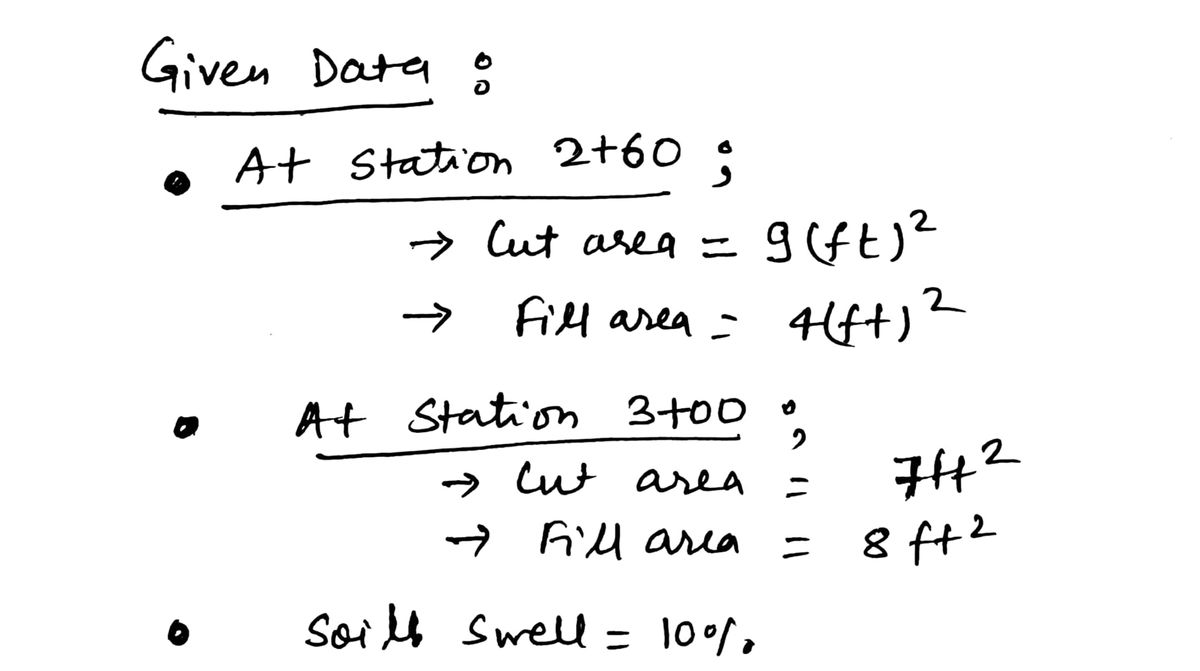 Given Data :
• At Station 2+60 ;
→ Cut area = 9(ft)²
→ Fill area = 4(ft)²
• At Station 3+00 ;
→ Cut area = 7ft²
→ Fill area = 8 ft²
• Swell = 10%.